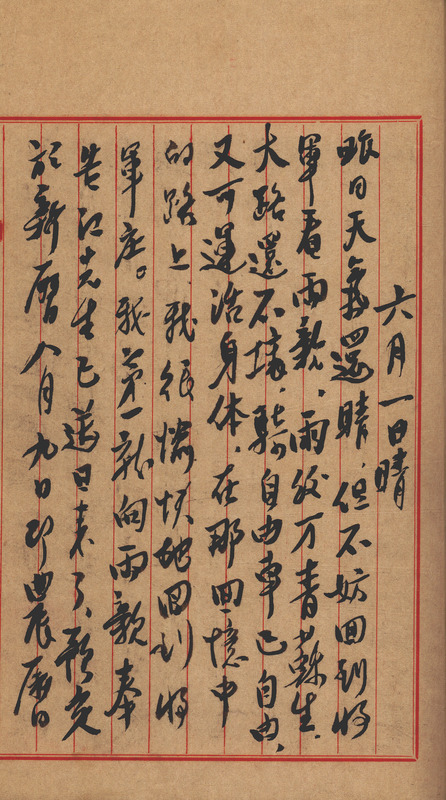 六月一日晴
昨日天氣還晴，但不妨回到將
軍看雨歌，雨後万青蘇生，
大路還不壞，騎自由車已自由，
又可運活身体，在那回憶中
的路上，我很愉快地回到將
軍庄。我第一就向雨歌奉
告江先生已送日表了，預定
於新曆八月九日即農曆